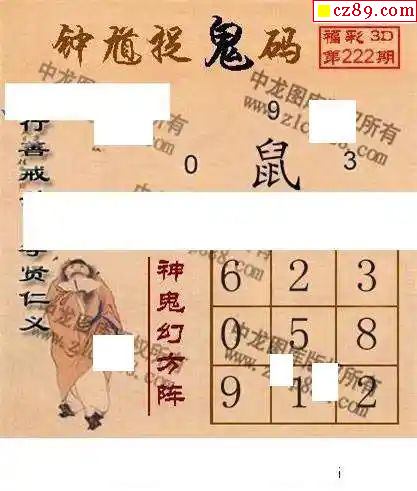 cz89.com
钟馗捉鬼码
福彩3D
第222期
9
0 鼠 3
行善戒
贤仁义
神鬼幻方阵
6 2 3
0 5 8
9 1 2
中龙图库版权所有
i